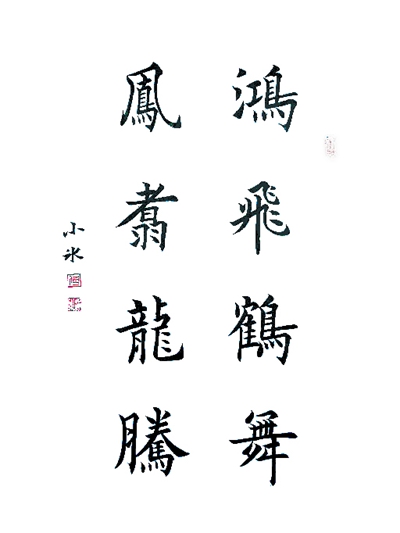 鴻飛鶴舞
鳳翥龍騰
小冰